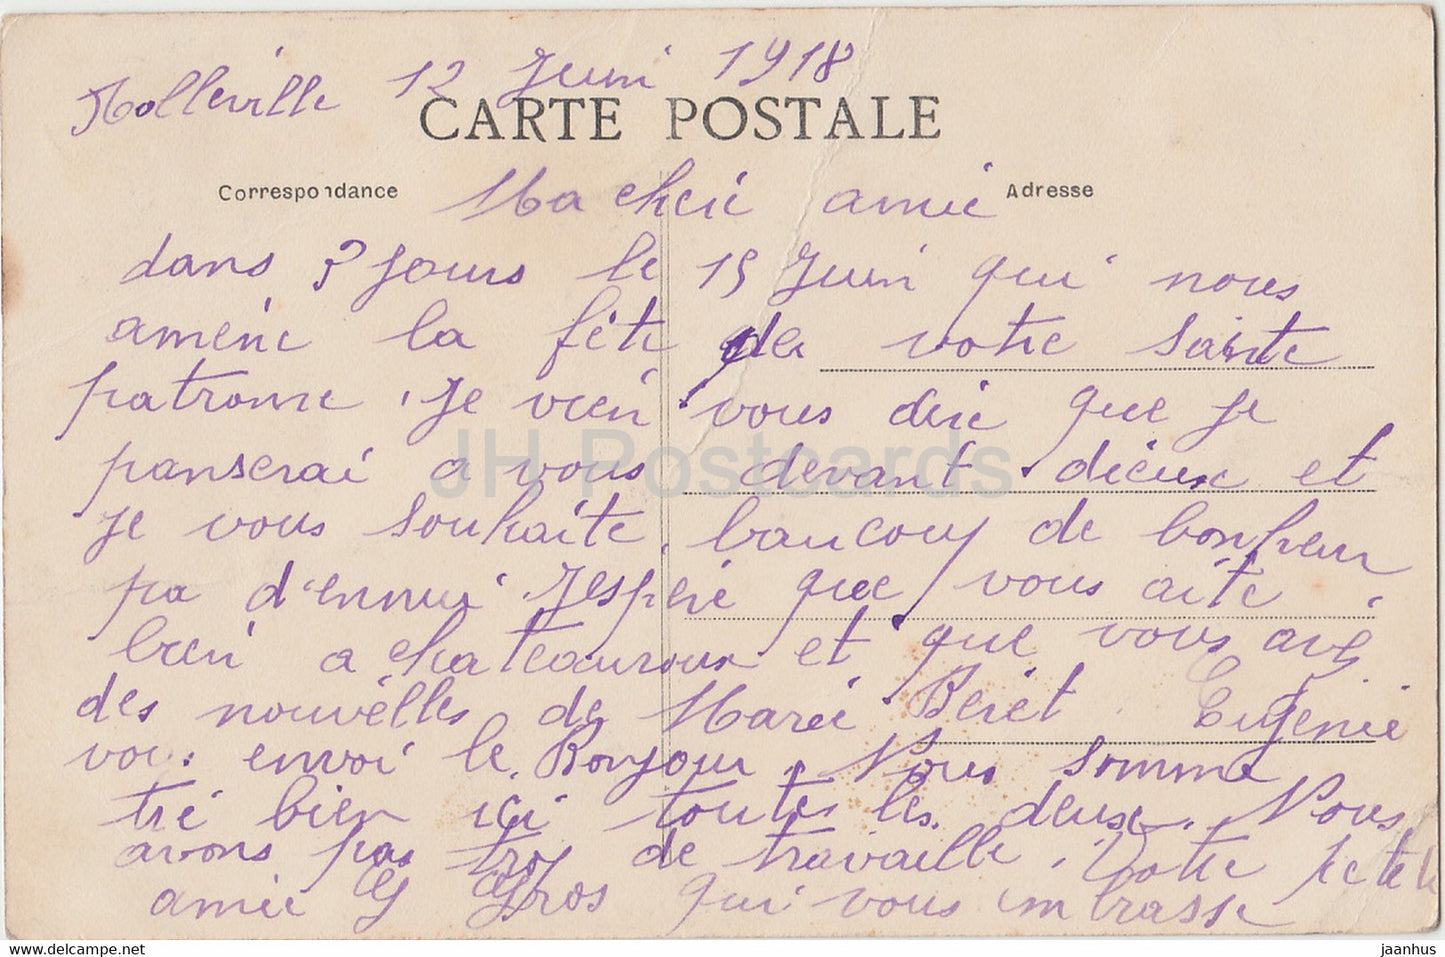 Holleville 12 Juin 1918
CARTE POSTALE
Correspondance
Adresse
Ma cheie amie
dans 3 jours le 15 Juin qui nous
amene la fête de votre Sainte
patronne, je vien vous dire que je
panserai a vous devant dieux et
je vous souhaite baucoup de bonheur
pa d'ennui. Jespere que vous aite
bien a chateauroux et que vous avez
des nouvelles de Marie Beret Eugenie
vous envoi le Bonjour. Nous somme
tre bien ici toutes les deux. Nous
avons pas trop de travaille. Votre petete
amie G Gros qui vous embrasse
JH Postcards
www.delcampe.net
jaanhus